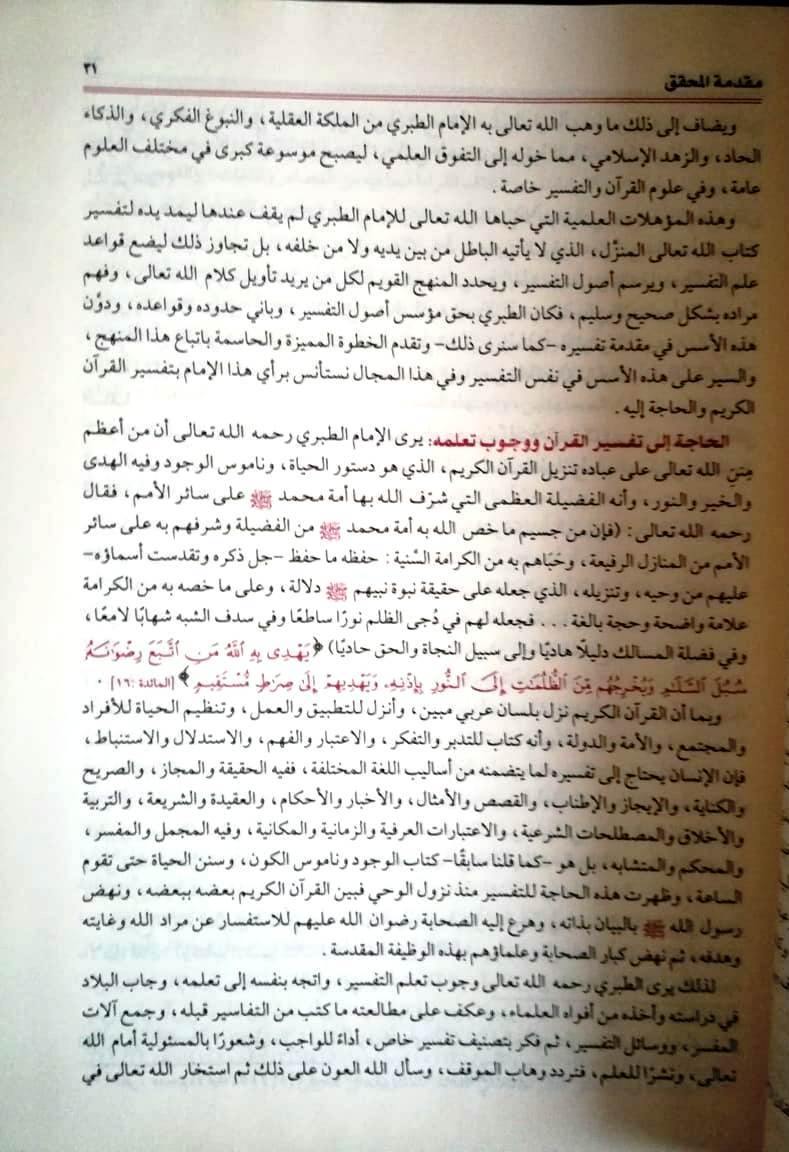 مقدمة المحقق
٣١
ويضاف إلى ذلك ما وهب الله تعالى به الإمام الطبري من الملكة العقلية، والنبوغ الفكري، والذكاء
الحاد، والزهد الإسلامي، مما خوله إلى التفوق العلمي، ليصبح موسوعة كبرى في مختلف العلوم
عامة، وفي علوم القرآن والتفسير خاصة.
وهذه المؤهلات العلمية التي حباها الله تعالى للإمام الطبري لم يقف عندها ليمد يده لتفسير
كتاب الله تعالى المنزَّل، الذي لا يأتيه الباطل من بين يديه ولا من خلفه، بل تجاوز ذلك ليضع قواعد
علم التفسير، ويرسم أصول التفسير، ويحدد المنهج القويم لكل من يريد تأويل كلام الله تعالى، وفهم
مراده بشكل صحيح وسليم، فكان الطبري بحق مؤسس أصول التفسير، وباني حدوده وقواعده، ودوَّن
هذه الأسس في مقدمة تفسيره -كما سنرى ذلك- وتقدم الخطوة المميزة والحاسمة باتباع هذا المنهج،
والسير على هذه الأسس في نفس التفسير وفي هذا المجال نستأنس برأي هذا الإمام بتفسير القرآن
الكريم والحاجة إليه.
الحاجة إلى تفسير القرآن ووجوب تعلمه: يرى الإمام الطبري رحمه الله تعالى أن من أعظم
مِننِ الله تعالى على عباده تنزيل القرآن الكريم، الذي هو دستور الحياة، وناموس الوجود وفيه الهدى
والخير والنور، وأنه الفضيلة العظمى التي شرّف الله بها أمة محمد ﷺ على سائر الأمم، فقال
رحمه الله تعالى: (فإن من جسيم ما خص الله به أمة محمد ﷺ من الفضيلة وشرفهم به على سائر
الأمم من المنازل الرفيعة، وحَبَاهم به من الكرامة السَّنية: حفظه ما حفظ -جل ذكره وتقدست أسماؤه-
عليهم من وحيه، وتنزيله، الذي جعله على حقيقة نبوة نبيهم ﷺ دلالة، وعلى ما خصه به من الكرامة
علامة واضحة وحجة بالغة... فجعله لهم في دُجى الظلم نورًا ساطعًا وفي سدف الشبه شهابًا لامعًا،
وفي فضلة المسالك دليلًا هاديًا وإلى سبيل النجاة والحق حاديًا) ﴿يَهْدِى بِهِ ٱللَّهُ مَنِ ٱتَّبَعَ رِضْوَٰنَهُۥ
سُبُلَ ٱلسَّلَٰمِ وَيُخْرِجُهُم مِّنَ ٱلظُّلُمَٰتِ إِلَى ٱلنُّورِ بِإِذْنِهِۦ وَيَهْدِيهِمْ إِلَىٰ صِرَٰطٍ مُّسْتَقِيمٍ﴾ [المائدة: ١٦].
وبما أن القرآن الكريم نزل بلسان عربي مبين، وأنزل للتطبيق والعمل، وتنظيم الحياة للأفراد
والمجتمع، والأمة والدولة، وأنه كتاب للتدبر والتفكر، والاعتبار والفهم، والاستدلال والاستنباط،
فإن الإنسان يحتاج إلى تفسيره لما يتضمنه من أساليب اللغة المختلفة، ففيه الحقيقة والمجاز، والصريح
والكناية، والإيجاز والإطناب، والقصص والأمثال، والأخبار والأحكام، والعقيدة والشريعة، والتربية
والأخلاق والمصطلحات الشرعية، والاعتبارات العرفية والزمانية والمكانية، وفيه المجمل والمفسر،
والمحكم والمتشابه، بل هو -كما قلنا سابقًا- كتاب الوجود وناموس الكون، وسنن الحياة حتى تقوم
الساعة، وظهرت هذه الحاجة للتفسير منذ نزول الوحي فبين القرآن الكريم بعضه ببعضه، ونهض
رسول الله ﷺ بالبيان بذاته، وهرع إليه الصحابة رضوان الله عليهم للاستفسار عن مراد الله وغايته
وهدفه، ثم نهض كبار الصحابة وعلماؤهم بهذه الوظيفة المقدسة.
لذلك يرى الطبري رحمه الله تعالى وجوب تعلم التفسير، واتجه بنفسه إلى تعلمه، وجاب البلاد
في دراسته وأخذه من أفواه العلماء، وعكف على مطالعته ما كتب من التفاسير قبله، وجمع آلات
المفسر، ووسائل التفسير، ثم فكر بتصنيف تفسير خاص، أداءً للواجب، وشعورًا بالمسئولية أمام الله
تعالى، ونشرًا للعلم، فتردد وهاب الموقف، وسأل الله العون على ذلك ثم استخار الله تعالى في